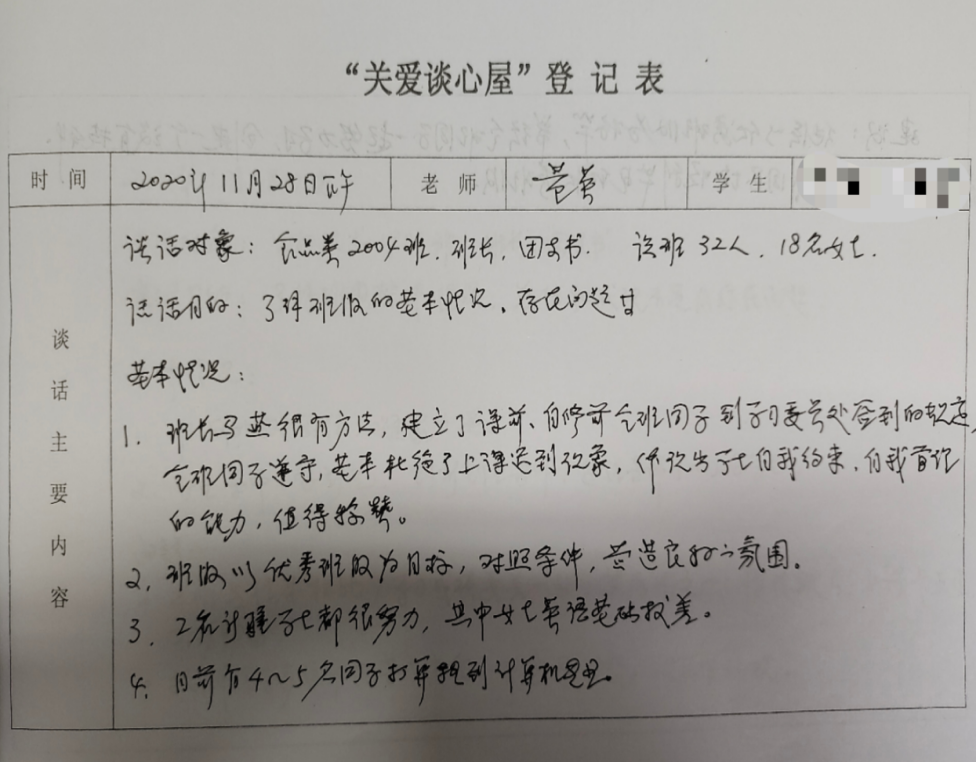 “关爱谈心屋”登记表
时间 2020年11月28日下午 老师 学生
谈话主要内容
谈话对象：食品类2004班，班长，团支书． 该班32人，18名女生．
谈话目的：了解班级的基本情况、存在问题等
基本情况：
1. 班长马燕很有方法，建立了课前、自修前全班同学到学习委员处签到的规定，
全班同学遵守，基本杜绝了上课迟到现象，体现出学生自我约束，自我管理
的能力，值得称赞。
2. 班级以优秀班级为目标，对照条件，营造良好的氛围。
3. 2名新疆学生都很努力，其中女生英语基础较差。
4. 目前有4～5名同学打算转到计算机专业。